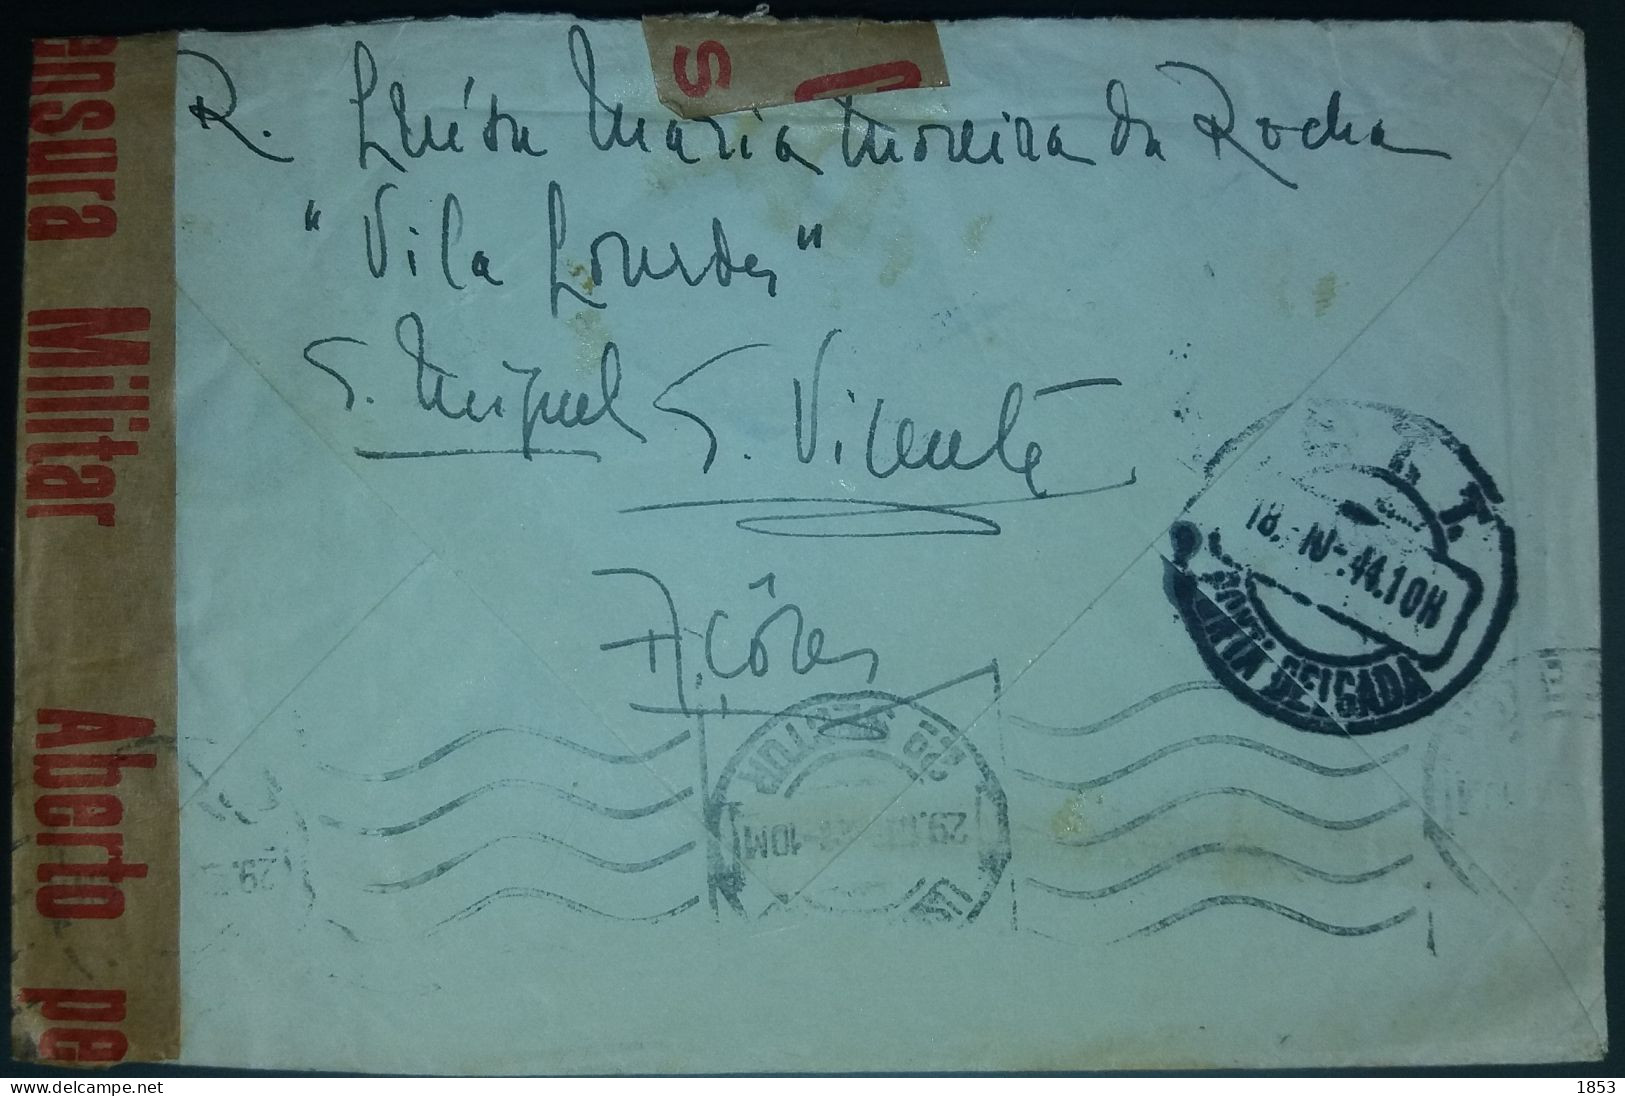 R. Luísa Maria Moreira da Rocha
"Vila Lourdes"
S. Miguel S. Vicente
Açôres
ensura Militar Aberto pe
S
T.
18.-IV-.44.10H
DELGADA
29.
10M
29.
delcampe.net
1853